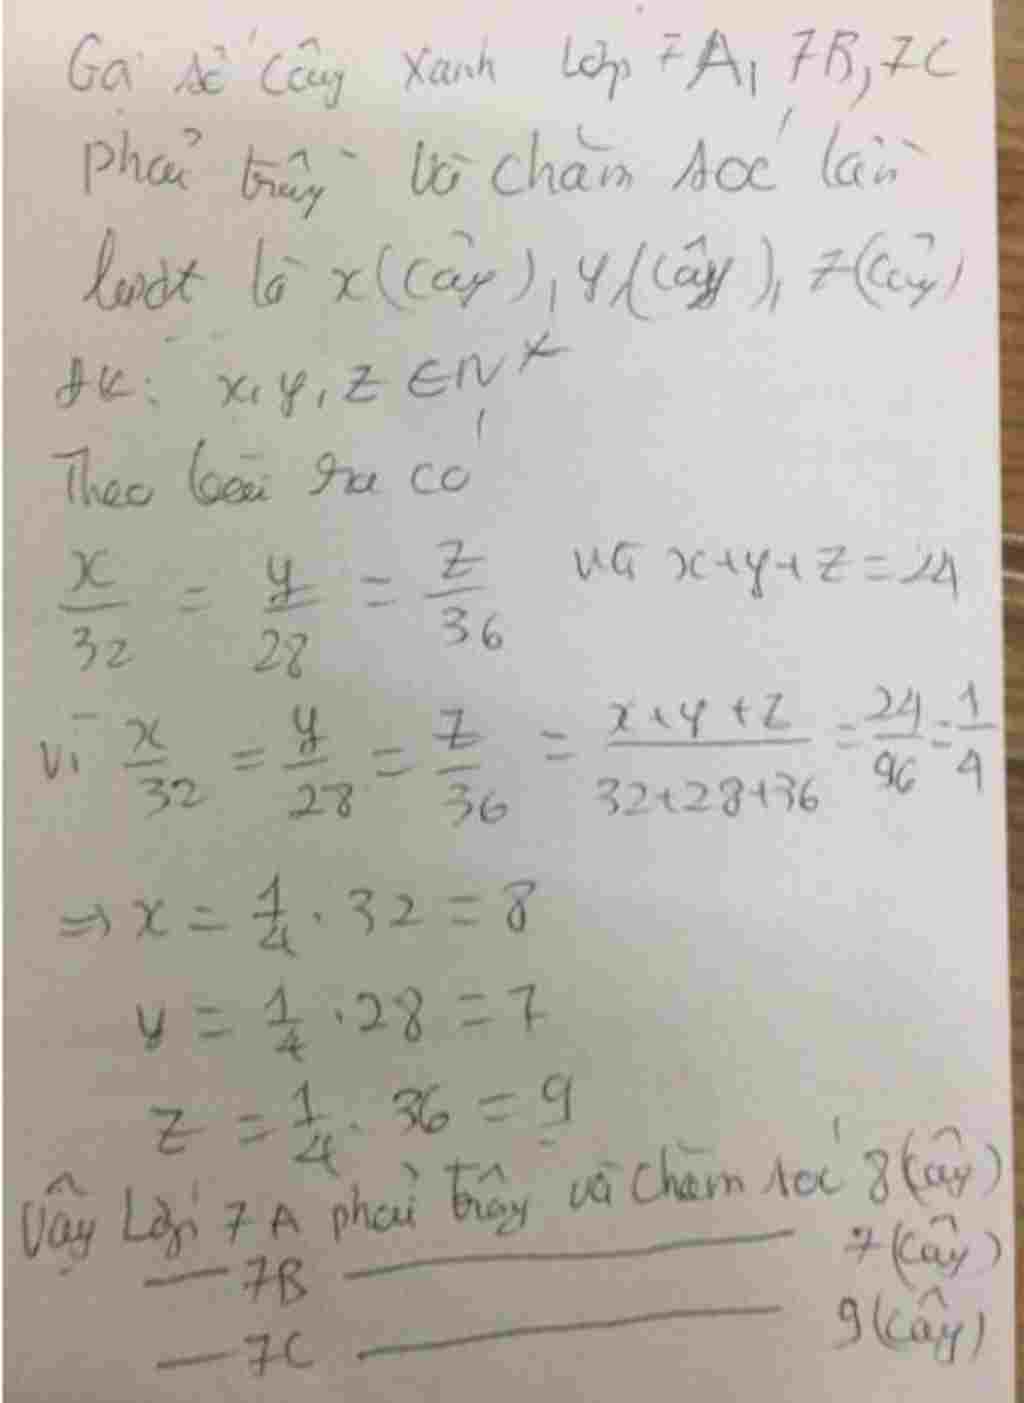 Gọi số cây xanh lớp 7A, 7B, 7C
phải trồng và chăm sóc lần
lượt là x(cây), y(cây), z(cây)
ĐK: x, y, z ∈ N*
Theo bài ra có
x/32 = y/28 = z/36 và x+y+z = 24
Vì x/32 = y/28 = z/36 = (x+y+z)/(32+28+36) = 24/96 = 1/4
=> x = 1/4 . 32 = 8
y = 1/4 . 28 = 7
z = 1/4 . 36 = 9
Vậy Lớp 7A phải trồng và chăm sóc 8(cây)
— 7B — 7(cây)
— 7C — 9(cây)